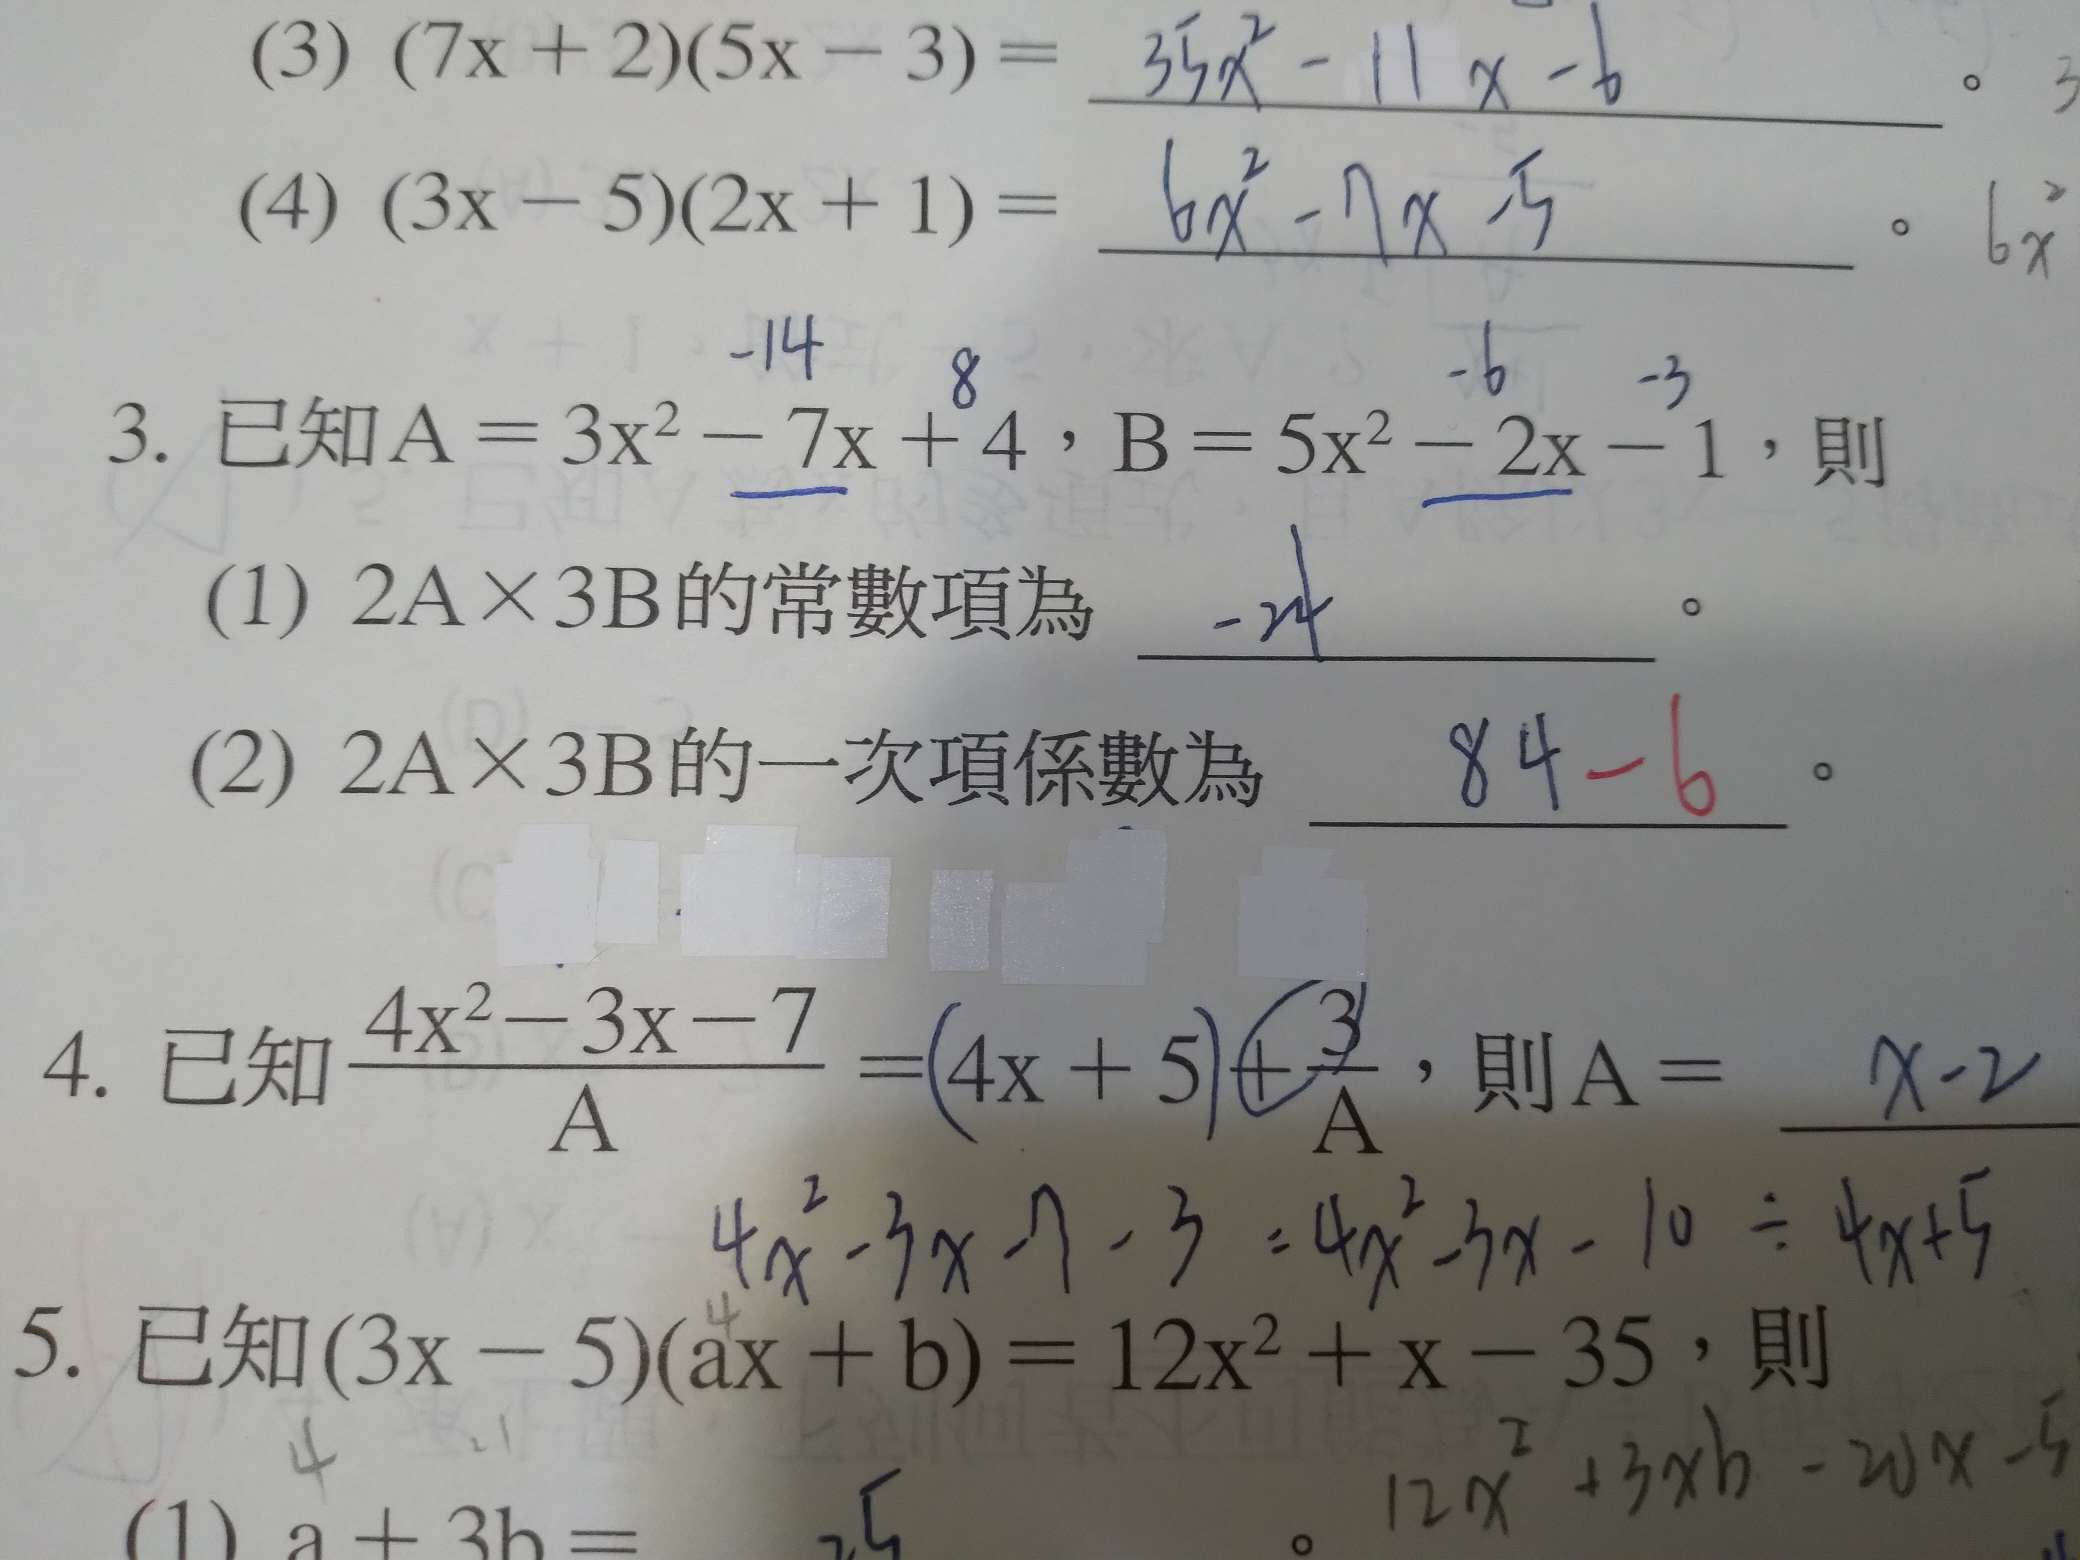 (3) (7x + 2)(5x − 3) = 35x² - 11x - 6 。 3
(4) (3x − 5)(2x + 1) = 6x² - 7x - 5 。 6x²
-14 8 -6 -3
3. 已知A = 3x² − 7x + 4，B = 5x² − 2x − 1，則
(1) 2A×3B的常數項為 -24 。
(2) 2A×3B的一次項係數為 84 - 6 。
4. 已知 (4x² − 3x − 7)/A = (4x + 5) + 3/A，則A = x - 2
4x² - 3x - 7 - 3 = 4x² - 3x - 10 ÷ 4x + 5
4
5. 已知(3x − 5)(ax + b) = 12x² + x − 35，則
4 21 12x² + 3xb - 20x - 5
(1) a + 3b = 25 。